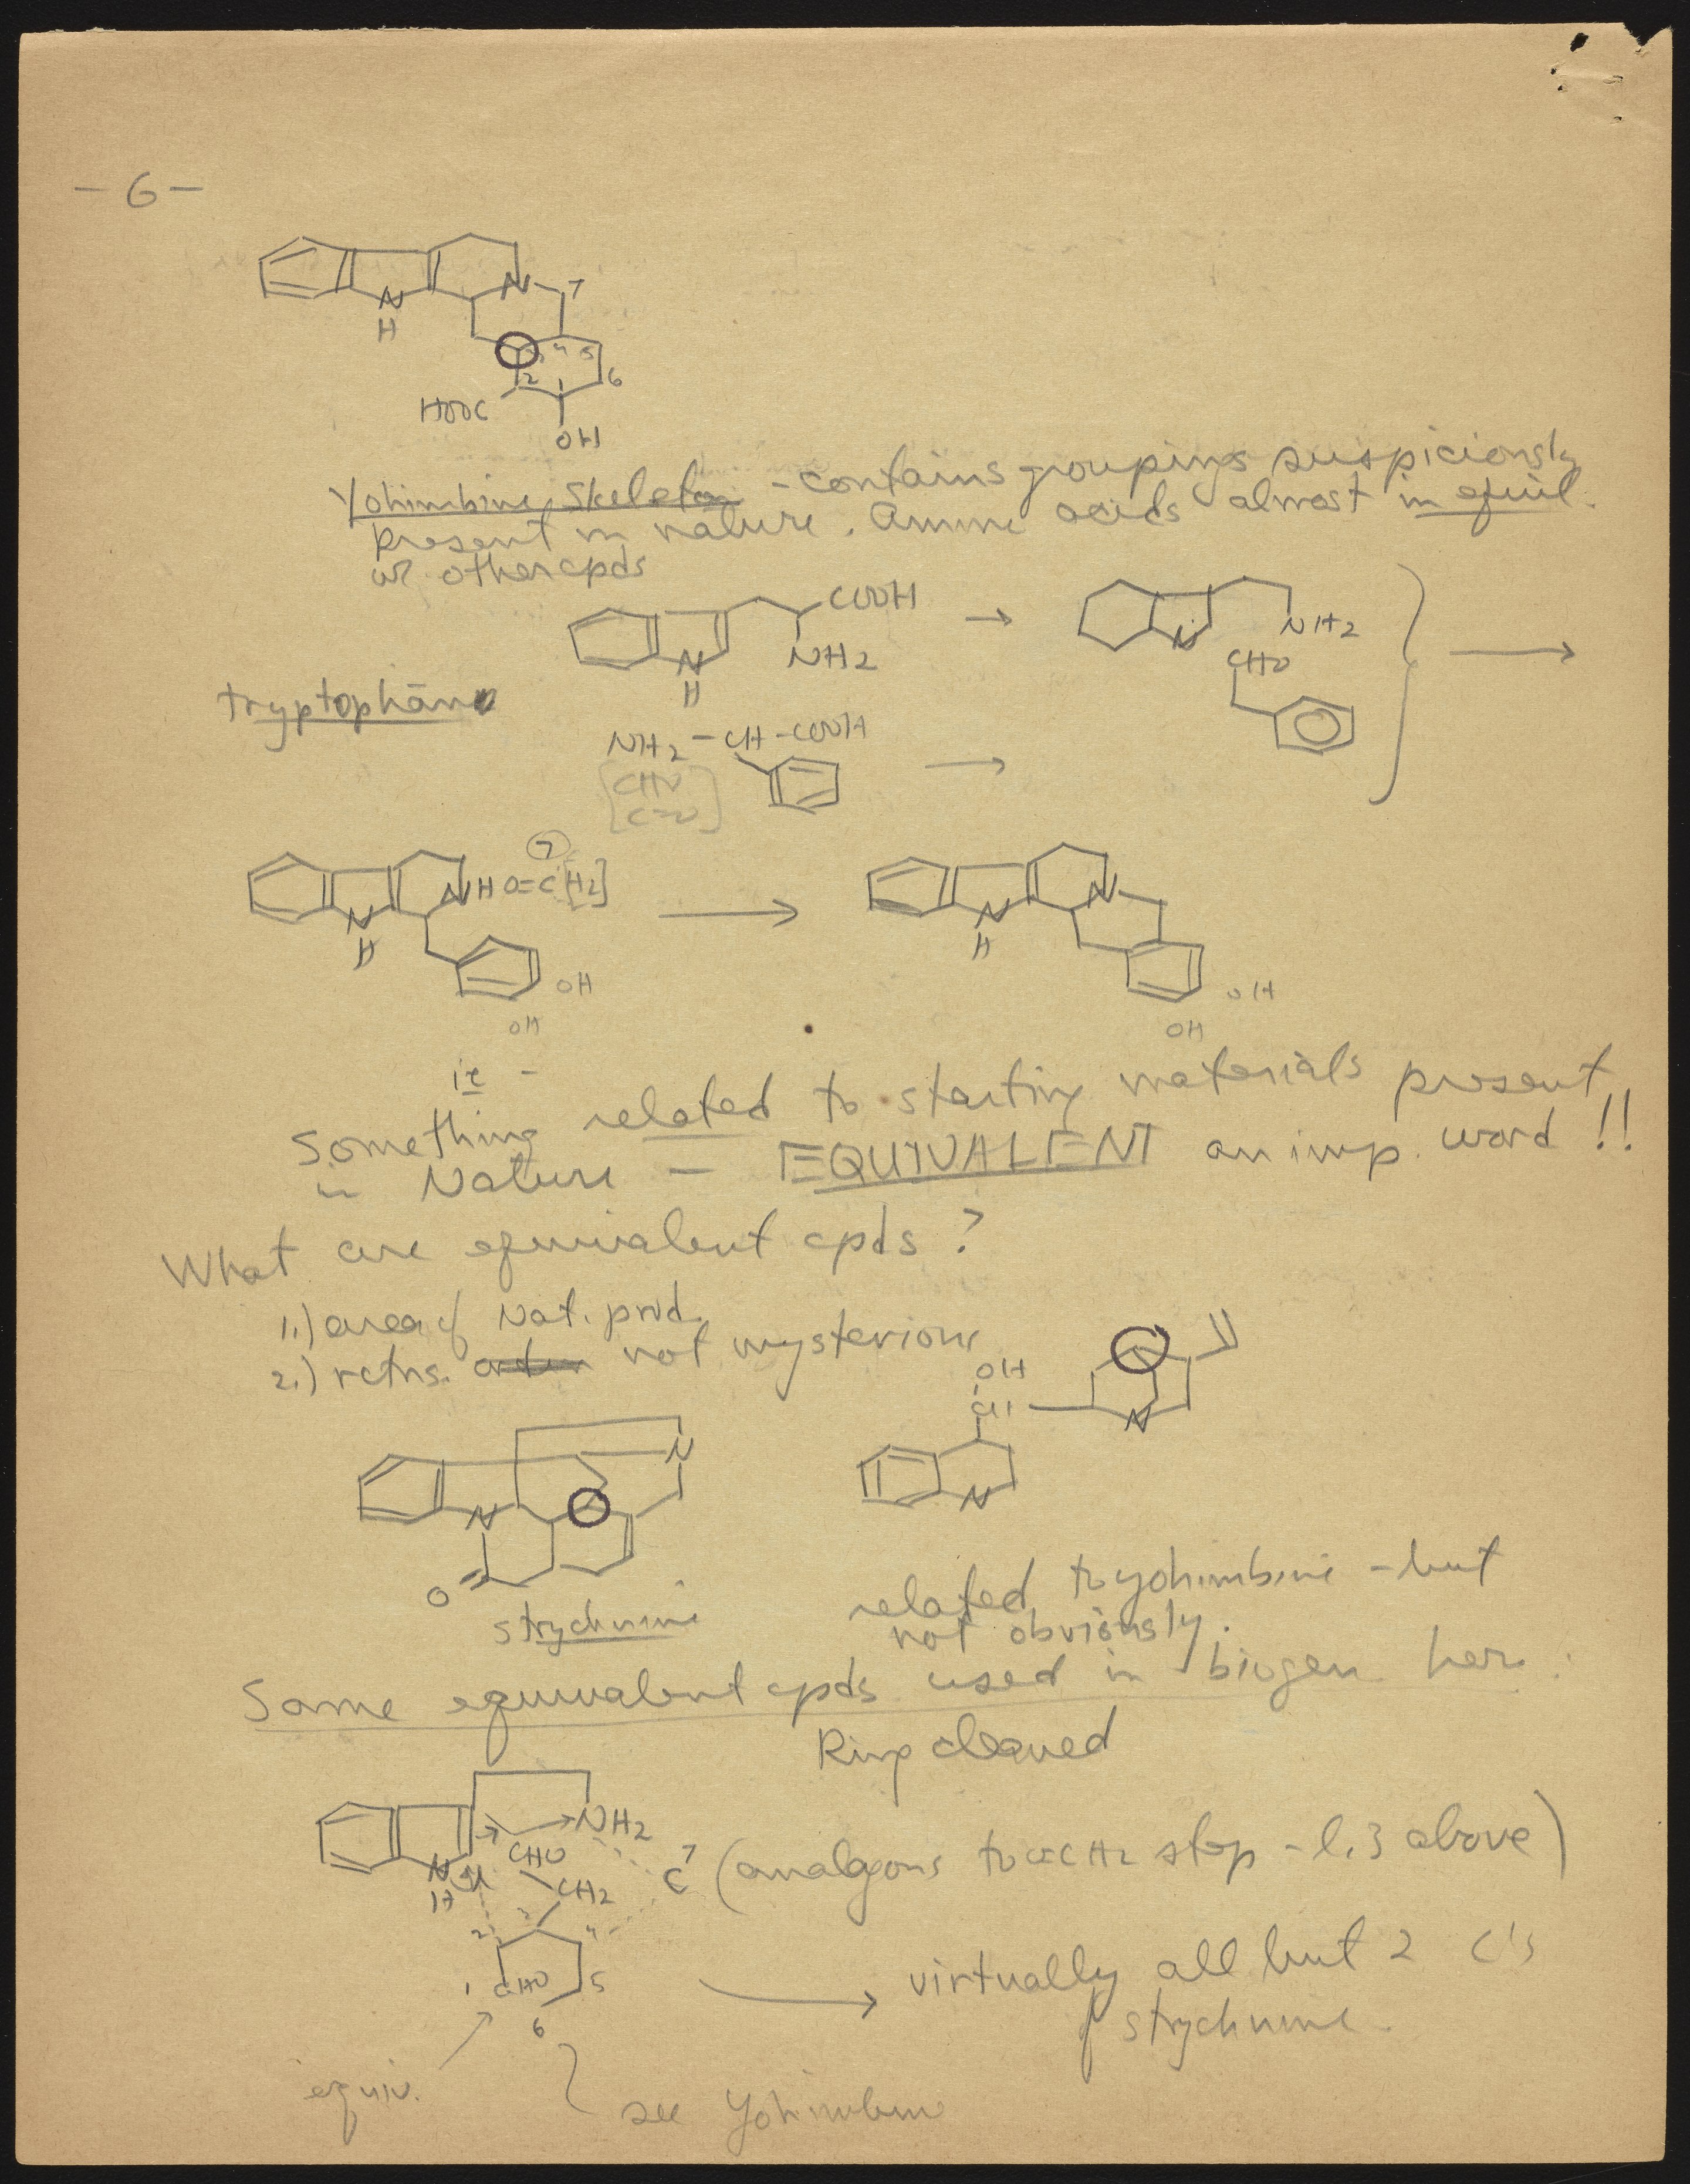 - 6 -
N
H
N
7
3 4 5
2 1 6
HOOC
OH
Yohimbine Skeleton - contains groupings suspiciously
present in nature. Amine acids almost in equil.
w? other cpds
COOH
NH2
N
H
→
N
NH2
CHO
→
tryptophane
NH2 - CH - COOH
[CHO
C=O]
→
7
N
H
NH O=C[H2]
OH
OH
→
N
H
N
OH
OH
ie -
Something related to starting materials present
in Nature - EQUIVALENT an imp. word !!
What are equivalent cpds ?
1.) area of Nat. prod.
2.) rctns. not mysterious
OH
CH
N
N
N
N
O
strychnine
related to yohimbine - but
not obviously.
Same equivalent cpds used in biogen here.
Ring cleaved
NH2
N
H
CHO
CH2
C 7 (analogous to O=CH2 step - l. 3 above)
2 3 4
1 CHO 5
6
→ virtually all but 2 C's
of strychnine.
equiv.
see Yohimbine